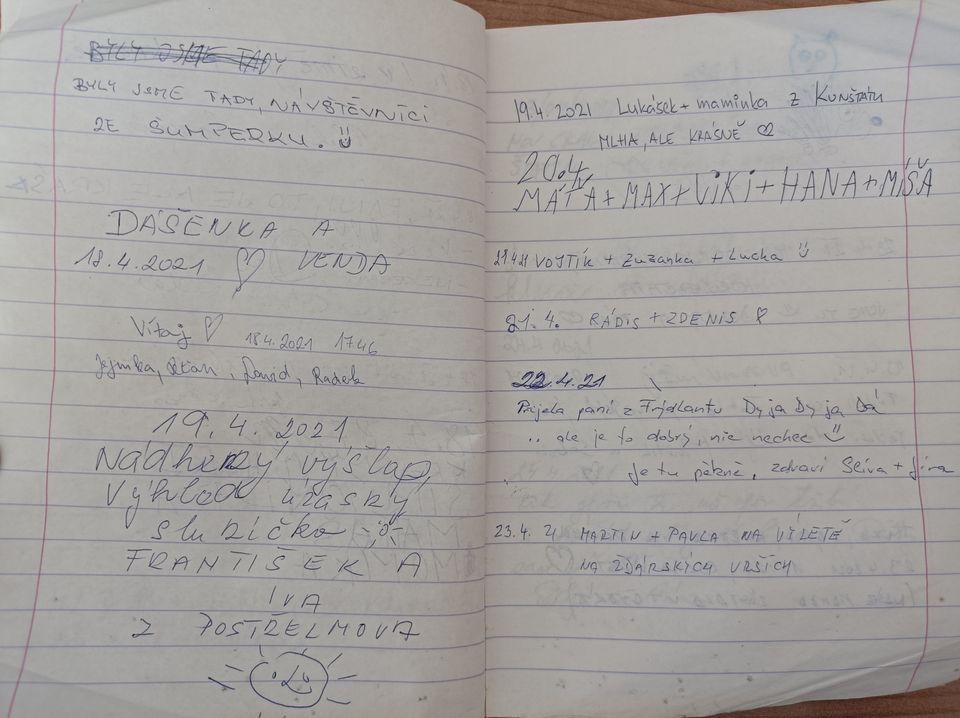 BYLY JSME TADY
BYLY JSME TADY, NÁVŠTĚVNÍCI
ZE ŠUMPERKU.
DÁŠENKA A
18.4.2021 VENDA
Vítaj 18.4.2021 17.46
David, Radek
19. 4. 2021
Nádherný výšlap,
Výhled úžasný
sluníčko
FRANTIŠEK A
IVA
Z POSTŘELMOVA
19.4. 2021 Lukášek + maminka z KUNŠTÁTU
MLHA, ALE KRÁSNĚ
20.4.
MÁŤA + MAX + VIKI + HANA + MÍŠA
21.4.21 VOJTÍK + Zuzanka + Lucka
21.4. RÁDIS + ZDENIS
22.4.21
Přijela paní z Frýdlantu Dy ja Dy ja Dá
.. ale je to dobrý, nic nechce
Je tu pěkně, zdraví Slíva + Jíra
23.4. 21 MARTIN + PAVLA NA VÝLETĚ
NA ŽĎÁRSKÝCH VRŠÍCH